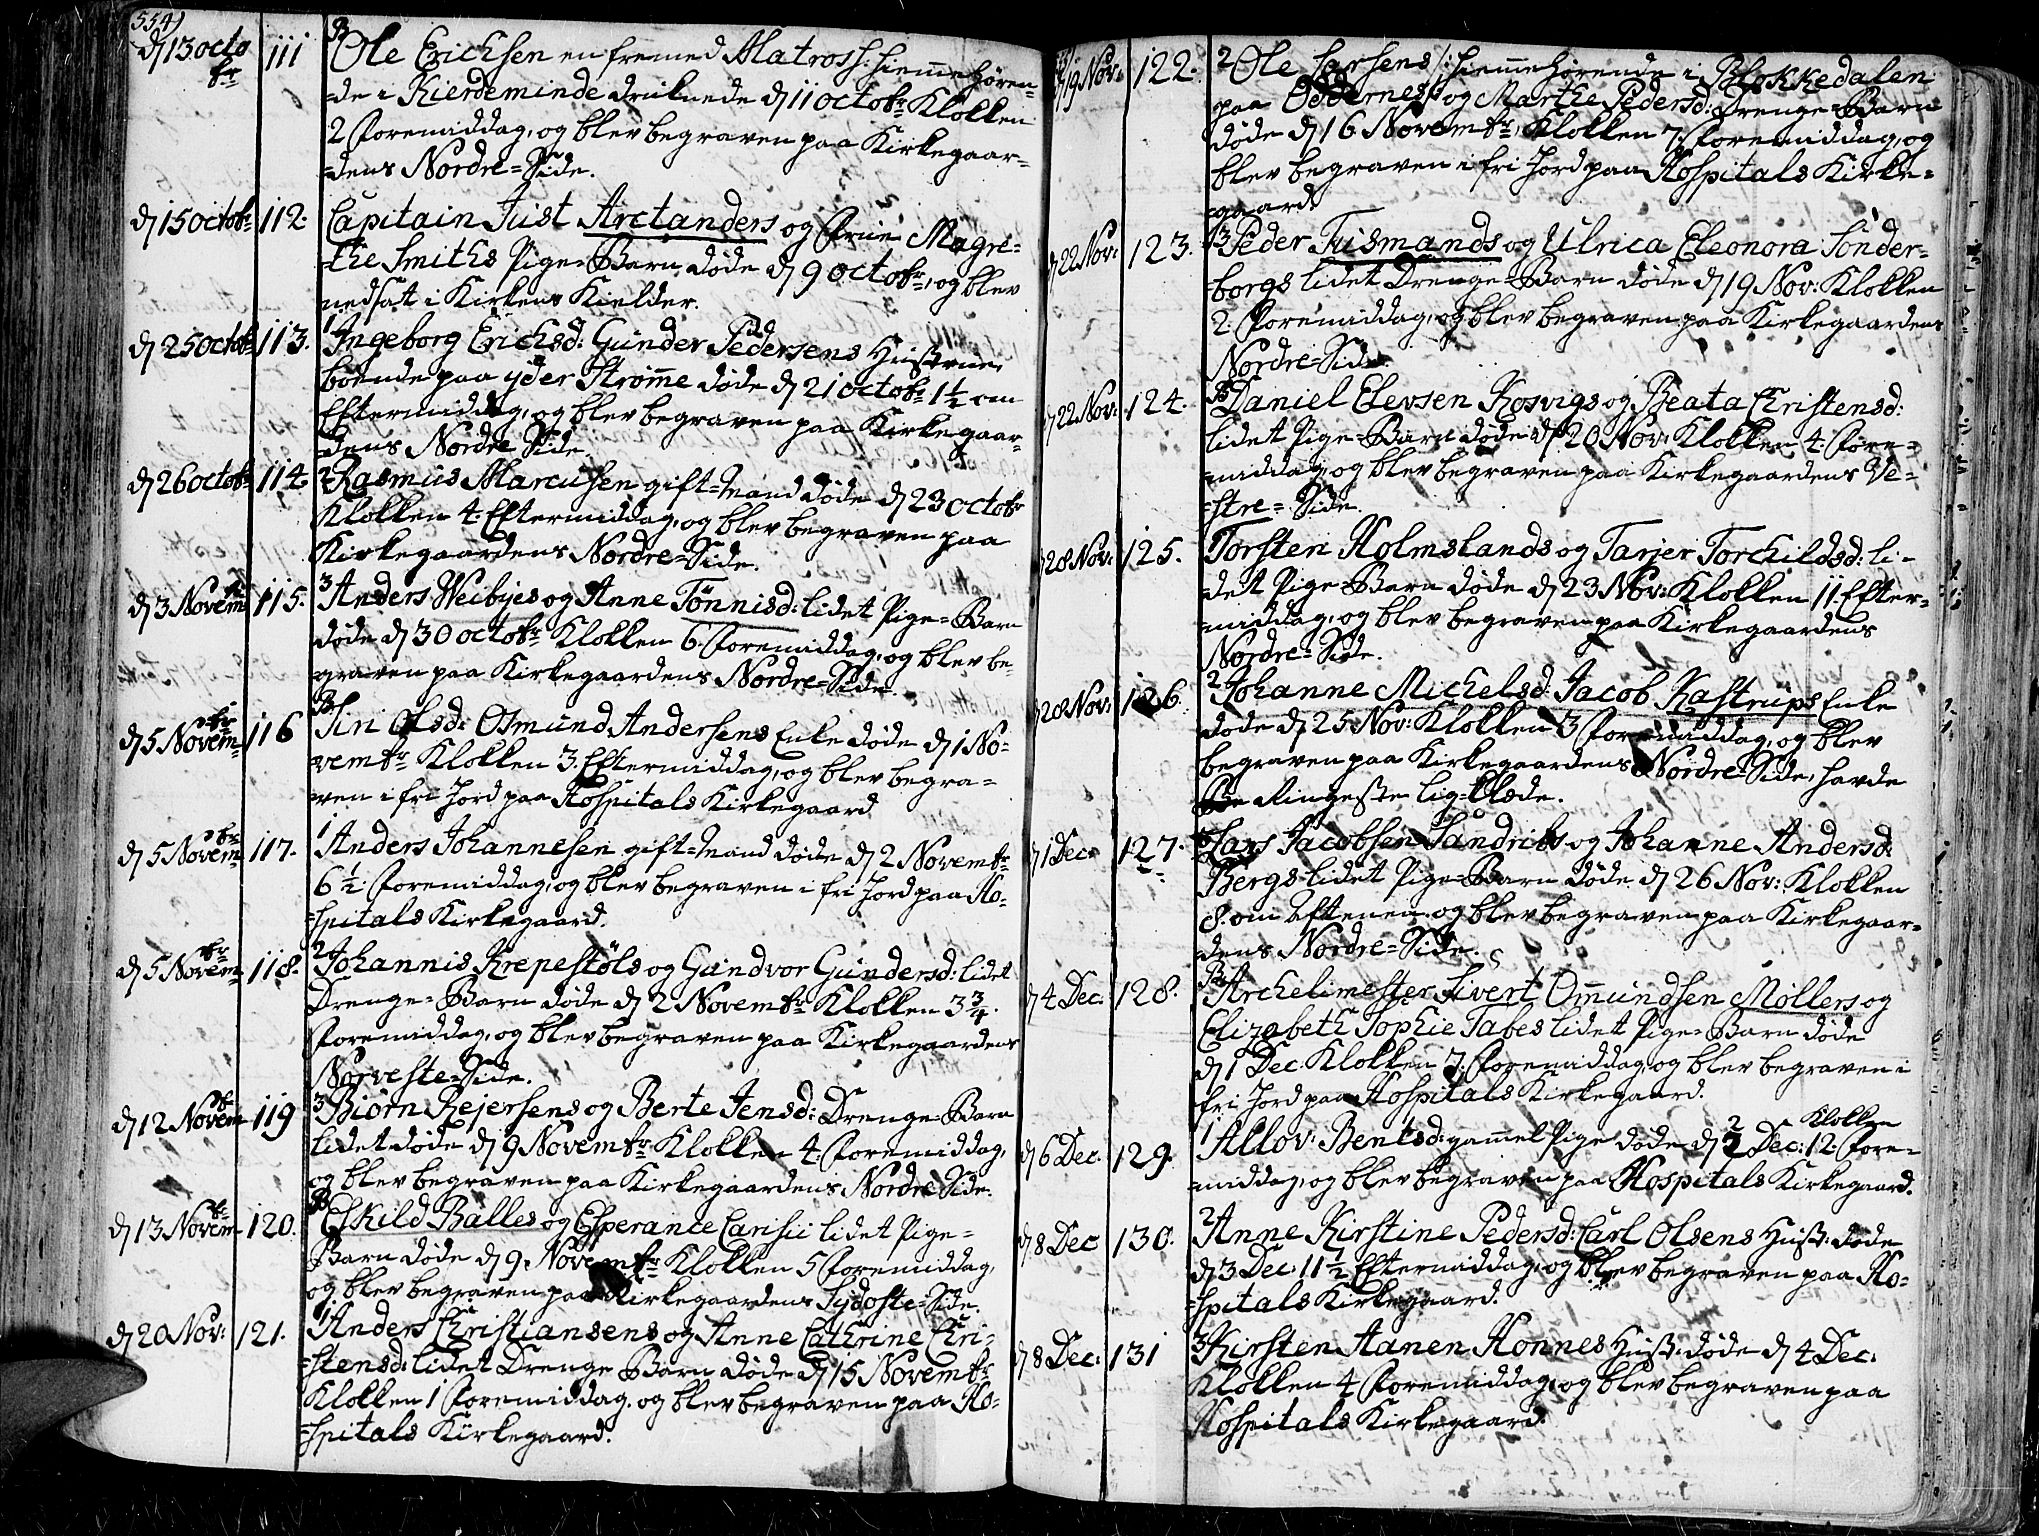 554)
d 13 octobr 111 Ole Ericksen en fremed Matros /: hiemmehøren-
-de i Kierdeminde druknede d 11 octobr Klokken
2 Foremiddag, og blev begraven paa Kirkegaar-
-dens Nordre-Side.
d 15 octobr 112. Capitain Juist Arctanders og Frue Magre-
-the Smiths Pige-Barn døde d 9 octobr, og blev
nedsat i Kirkens Kielder.
d 25 octobr 113. 1 Ingeborg Ericksd: Gunder Pedersens Hustrue,
boende paa yder Strømme døde d 21 octobr 1½ om
Eftermiddag, og blev begraven paa Kirkegaar-
-dens Nordre Side.
d 26 octobr 114. 2 Rasmus Marcusen gift-Mand døde d 23 octobr
Klokken 4. Eftermiddag, og blev begraven paa
Kirkegaardens Nordre-Side.
d 3 Novembr 115. 3 Anders Weibyes og Anne Tönnisd: lidet Pige-Barn
døde d 30 octobr Klokken 6 Foremiddag, og blev be-
graven paa Kirkegaardens Nordre-Side.
d 5 Novembr 116 Siri Olsd: Osmund Andersens Enke døde d 1 No-
vembr Klokken 3. Eftermiddag, og blev begra-
ven i fri Jord paa Hospitals Kirkegaard
d 5 Novembr 117. 1 Anders Johannesen gift-Mand døde d 2 Novembr
6½ Foremiddag, og blev begraven i fri Jord paa Ho-
-spitals Kirkegaard.
d 5 Novembr 118. 2 Johannis Krepestöls og Gundvor Gundersd: lidet
Drenge-Barn døde d 2 Novembr Klokken 3¾.
Foremiddag, og blev begraven paa Kirkegaardens
Norveste-Side.
d 12 Novembr 119 3 Biörn Rejersens og Berte Jensd: Drenge-Barn
lidet døde d 9 Novembr Klokken 4. Foremiddag,
og blev begraven paa Kirkegaardens Nordre Side.
d 13 Novembr 120. Eskild Balles og Esperance Carisii lidet Pige-
Barn døde d 9. Novembr Klokken 5 Foremiddag,
og blev begraven paa Kirkegaardens Sydoste-Side.
d 20 Nov: 121. 1 Anders Christiansens og Anne Cathrine Chri-
-stensd: lidet Drenge Barn døde d 15 Novembr
Klokken 1 Foremiddag. og blev begraven paa Ho-
-spitals Kirkegaard.
d 19 Nov: 122. 2 Ole Larsens /: hiemmehørende i Blokkedalen
paa Oddernes :/ og Marthe Pedersd: Drenge-Barn
døde d 16 Novembr, Klokken 7 Foremiddag, og
blev begraven i fri Jord paa Hospitals Kirke-
gaard.
d 22 Nov: 123. 3 Peder Trismands og Ulrica Eleonora Sönder-
-borgs lidet Drenge-Barn døde d 19 Nov: Klokken
2 Foremiddag, og blev begraven paa Kirkegaardens
Nordre-Side.
d 22 Nov: 124. Daniel Elevsen Kosvigs og Beata Christensd:
lidet Pige-Barn døde d 20 Nov: Klokken 4 Fore-
-middag, og blev begraven paa Kirkegaardens Ve-
-stre-Side.
d 28 Nov: 125. Torsten Holmslands og Tarjer Torchildsd: li-
-det Pige-Barn døde d 23 Nov: Klokken 11 Efter-
-middag, og blev begraven paa Kirkegaardens
Nordre-Side.
d 28 Nov: 126. 2 Johanne Michelsd: Jacob Kastrups Enke
døde d 25 Nov: Klokken 3 Foremiddag, og blev
begraven paa Kirkegaardens Nordre-Side, havde
Ringeste Lig-Klæde.
d 1 Dec: 127. Lars Jacobsen Sandriks og Johanne Andersd:
Bergs lidet Pige-Barn døde d 26 Nov: Klokken
8. om Aftenen. og blev begraven paa Kirkegaar-
dens Nordre-Side.
d 4 Dec: 128. Archelimester Sivert Omundsen Möllers og
Elizabeth Sophie Tabes lidet Pige-Barn døde
d 1 Dec. Klokken 7. Foremiddag, og blev begraven i
fri Jord paa Hospitals Kirkegaard.
d 6 Dec. 129. 1 Allov: Bentsd: gammel Pige døde d 2 Dec: Klokken 12 Fore-
-middag, og blev begraven paa Hospitals Kirkegaard.
d 8 Dec 130. 2 Anne Kirstine Pedersd: Carl Olsens Hust: døde
d 3 Dec: 11½ Eftermiddag, og blev begraven paa Ho-
-spitals Kirkegaard.
d 8 Dec: 131 3 Kirsten Aanen Honnes Hust: døde d 4 Dec:
Klokken 4 Foremiddag, og blev begraven paa
Hospitals Kirkegaard.